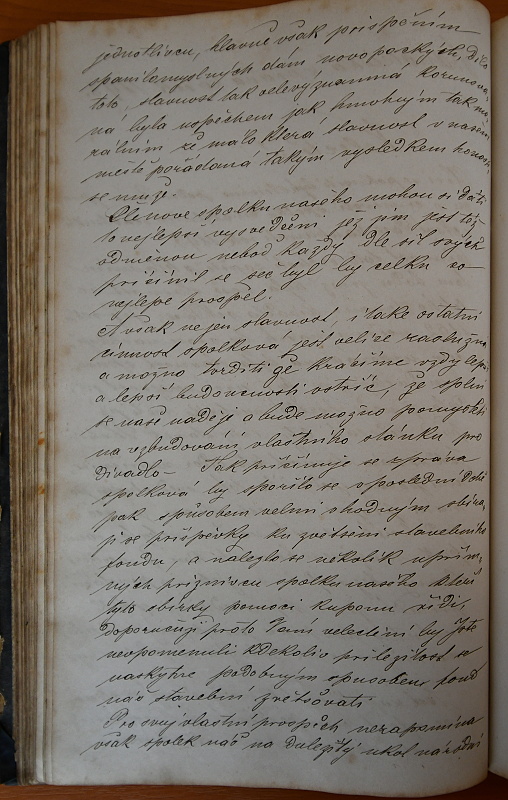 jednotlivcu, hlavně však prispěním
spanilomyslných dám novopackých, dílo
toto, slavnost tak velevýznamná korunova-
ná byla uspěchem jak hmotným tak mo-
rálním že málo která slavnost v našem
mestě pořádaná takým vysledkem honosi-
se muže.
Členove spolku našeho mohou si dáti
to nejlepší vysvědčení jež jim jest též
odměnou neboť každý dle sil svých
pričinil se seč byl by celku co
nejlepe prospel.
Avšak nejen slavnost, i take ostatni
činnost spolková jest velice zaslužna
a možno tvrditi že kráčíme vždy lepší
a lepší budoucnosti vstříc, že splní
se naše naděje a bude možno pomysleti
na vybudování vlastního stánku pro
Divadlo – Tak přičinuje se správa
spolková by spořilo se v poslední době
pak spůsobem velmi vhodným sbíra-
jí se příspěvky ku zvětšení stavebního
fondu, a nalezlo se několik uprím-
ných priznivcu spolku našeho kteri
tyto sbírky pomoci kuponu řídí,
doporučuji proto Vám velectění by jste
neopomenuli kdekoliv priležitost se
naskytne podobným spusobem fond
náš stavební zvětšovati
Pro svuj vlastní prospěch nezapomíná
však spolek náš na duležitý ukol národní